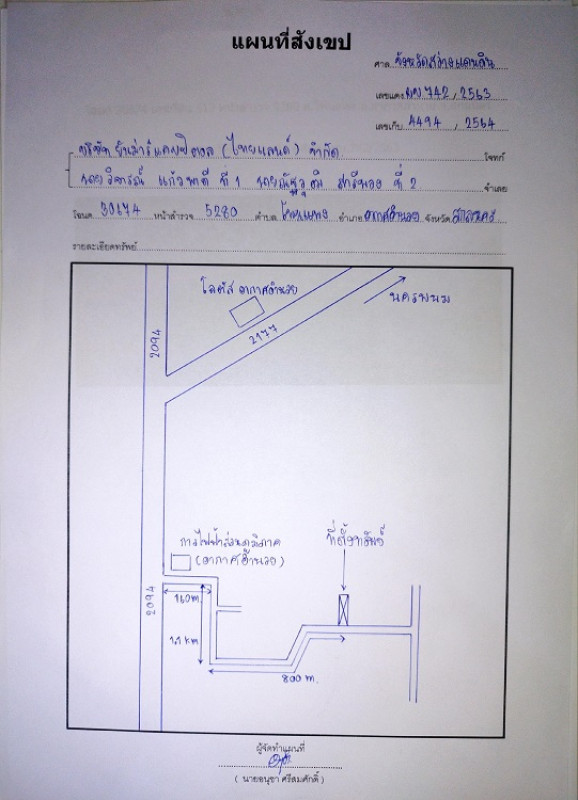 แผนที่สังเขป
ศาล จังหวัดสว่างแดนดิน
เลขแดง ผบ 742 , 2563
เลขเก็บ 4494 , 2564
บริษัท ยินม่าร์แคปปิตอล (ไทยแลนด์) จำกัด โจทก์
นายวิจารณ์ แก้วพาดี ที่ 1 นายณัฐวุฒิ สารีทอง ที่ 2 จำเลย
โฉนด 30674 หน้าสำรวจ 5280 ตำบล อำเภอ อากาศอำนวย จังหวัด สกลนคร
รายละเอียดทรัพย์
โลตัส อากาศอำนวย
นครพนม
2094
2177
การไฟฟ้าส่วนภูมิภาค
(อากาศอำนวย)
ที่ตั้งทรัพย์
2094
160 m.
1.1 km
800 m.
ผู้จัดทำแผนที่
( นายอนุชา ศรีสมศักดิ์ )